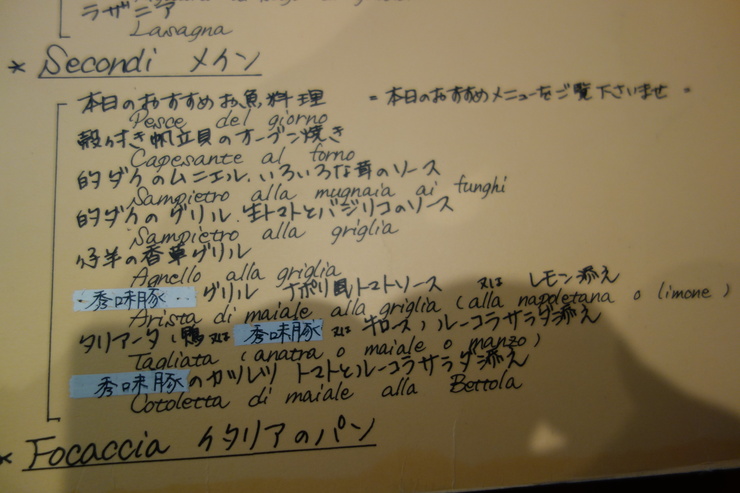 ラザニア
Lasagna
* Secondi メイン
本日のおすすめお魚料理 = 本日のおすすめメニューをご覧下さいませ =
Pesce del giorno
殻付き帆立貝のオーブン焼き
Capesante al forno
的ダイのムニエル、いろいろな茸のソース
Sampietro alla mugnaia ai funghi
的ダイのグリル、生トマトとバジリコのソース
Sampietro alla griglia
仔羊の香草グリル
Agnello alla griglia
秀味豚 グリル ナポリ風トマトソース 又は レモン添え
Arista di maiale alla griglia (alla napoletana o limone)
タリアータ (鴨 又は 秀味豚 又は 牛ロース) ルーコラサラダ添え
Tagliata (anatra o maiale o manzo)
秀味豚のカツレツ トマトとルーコラサラダ添え
Cotoletta di maiale alla Bettola
* Focaccia イタリアのパン